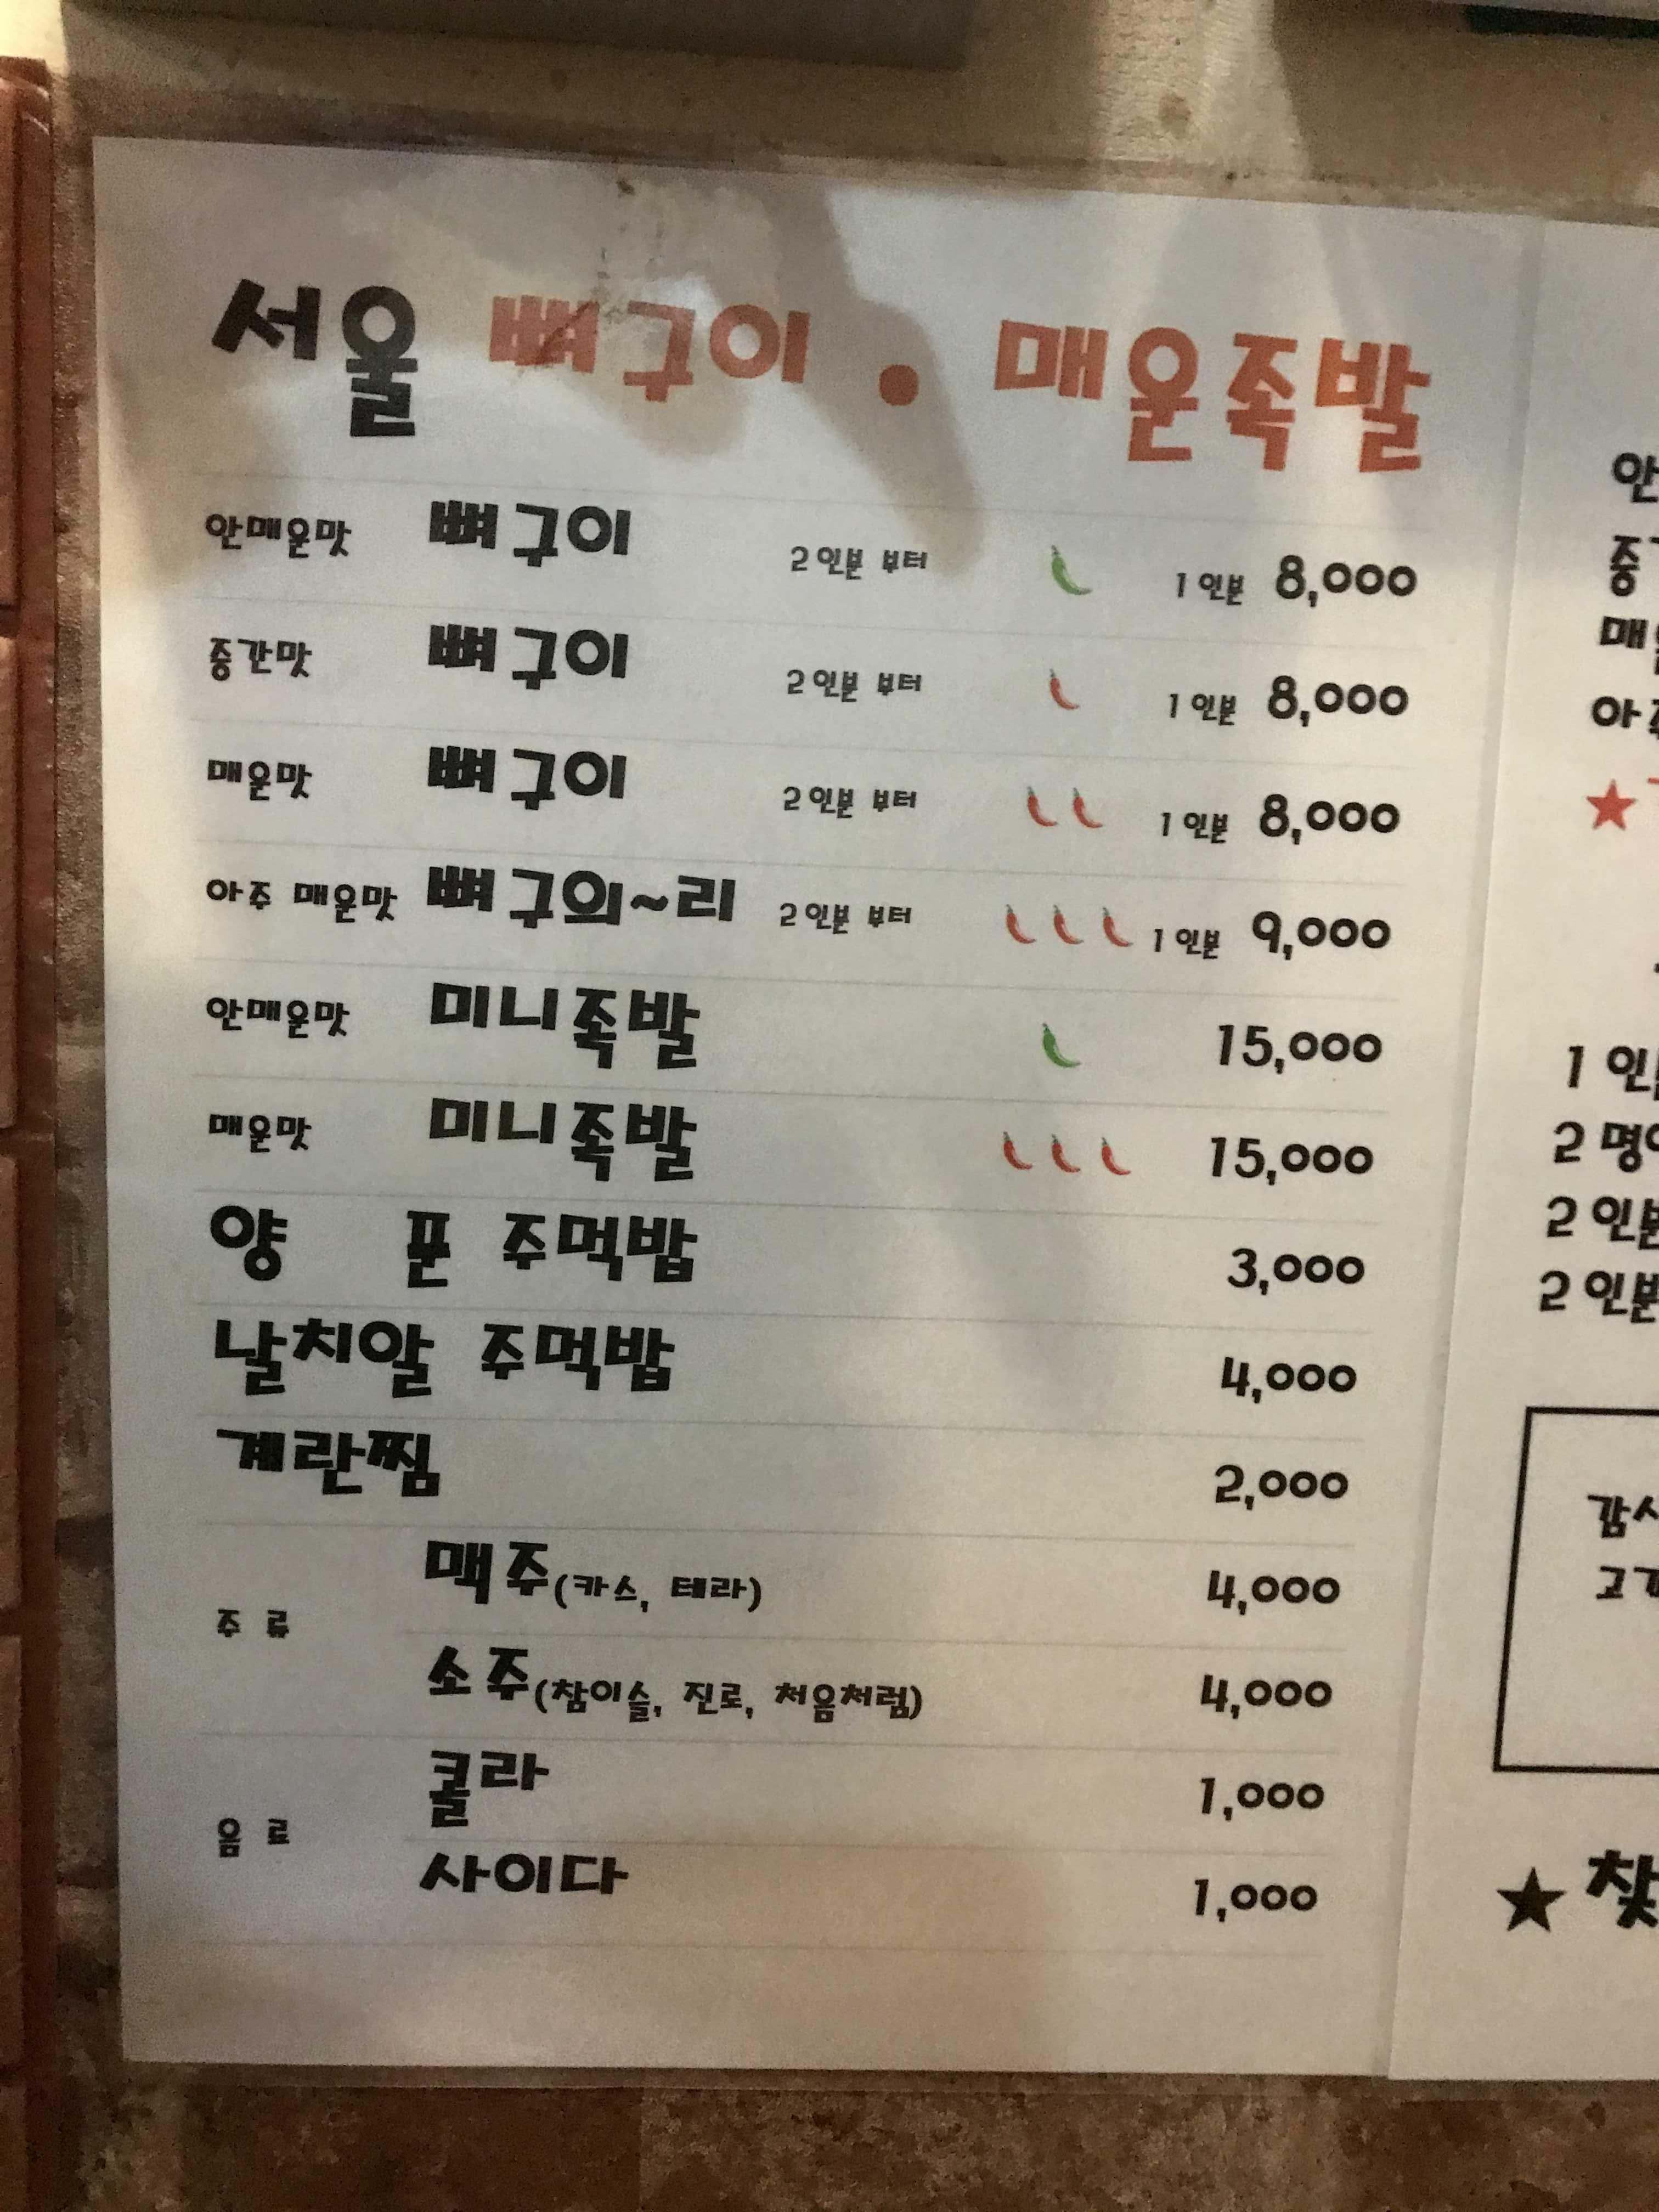 서울 뼈구이 • 매운족발
안매운맛 뼈구이 2인분 부터 1인분 8,000
중간맛 뼈구이 2인분 부터 1인분 8,000
매운맛 뼈구이 2인분 부터 1인분 8,000
아주 매운맛 뼈구의~리 2인분 부터 1인분 9,000
안매운맛 미니족발 15,000
매운맛 미니족발 15,000
양 푼 주먹밥 3,000
날치알 주먹밥 4,000
계란찜 2,000
주 류
맥주(카스, 테라) 4,000
소주(참이슬, 진로, 처음처럼) 4,000
음 료
콜라 1,000
사이다 1,000
안
아
★
1
2 명
2 인분
2 인분
감사
★